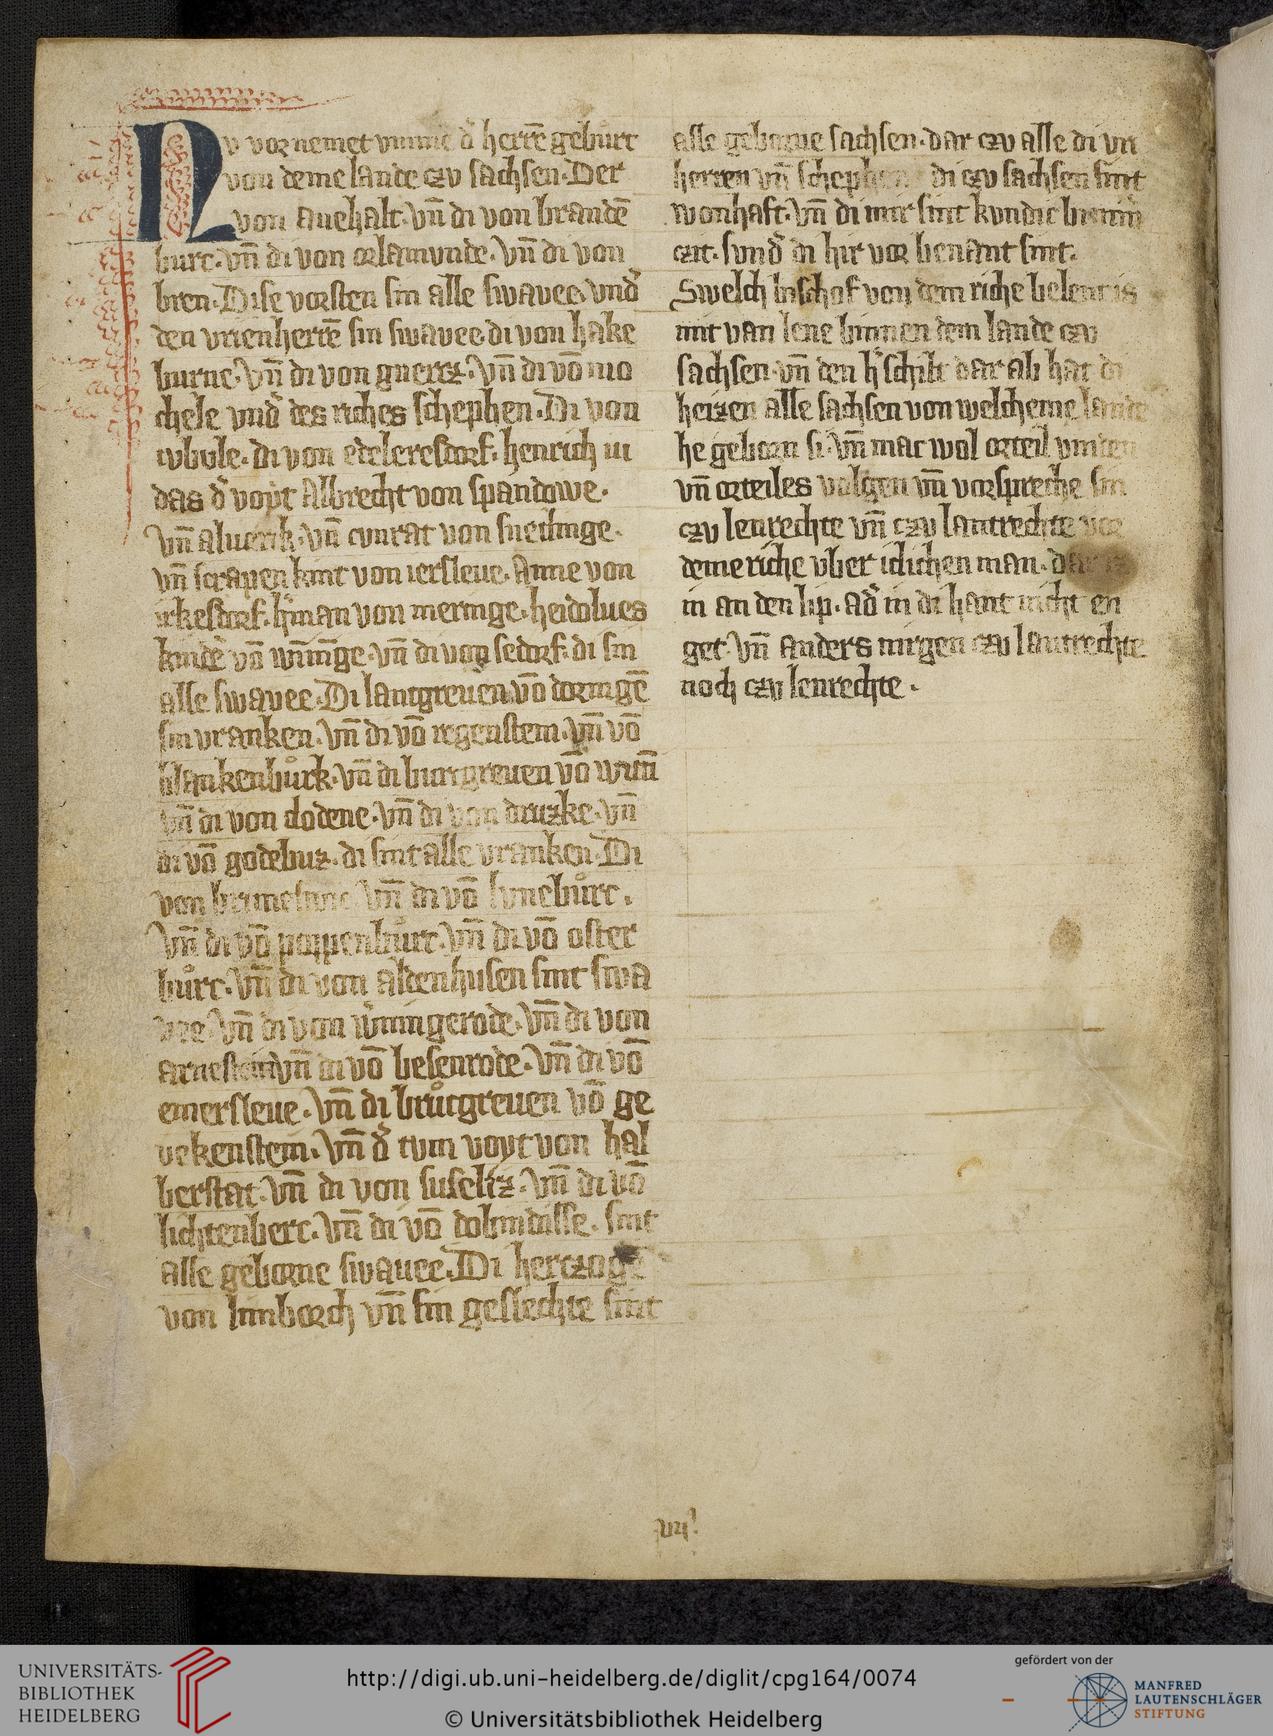 Nv vornemet vmme d̕ herrē gebůrt
von deme lande czv sachsen. Der
von anehalt. vn̄ di von brandē
burc. vn̄ di von orlamvnde. vn̄ di von
bren. Dise vorsten sin alle swavee. vnd̕
den vrienherrē sin swavee. di von hake
burne. vn̄ di von gnertz. vn̄ di vō mo
chele vnd̕ des riches schephen. Di von
di von edeleresdorf. henrich
das d̕ voyt Albrecht von spandowe.
vn̄ aluerik. vn̄ cvnrat von snetlinge.
vn̄ scrapen kint von iersleue. Anne von
irkesdorf. h̕man von meringe. heidolues
kindē vō di von sedorf. di sin
alle swavee. Di lantgreuen vō doringē
sin vranken. vn̄ di vō regenstein. vn̄ vō
blankenbůrk. vn̄ di burcgreuen vō
vn̄ di von clodene. vn̄ di von druzke. vn̄
di vō godebuz. di sint alle vranken. Di
von vn̄ di vō lvnebůrc.
vn̄ di vō poppenbůrc. vn̄ di vō oster
bůrc. vn̄ di von aldenhusen sint swa
vee. vn̄ di von w̕ningerode. vn̄ di von
arnestein vn̄ di vō besenrode. vn̄ di vō
emersleue. vn̄ di brůcgreuen vō ge
vekenstein. vn̄ d̕ tvm voyt von hal
berstat. vn̄ di von suseliz. vn̄ di vō
lichtenberc. vn̄ di vō dobindisse. sint
alle geborne swavee. Di hertzogē
von limborch vn̄ sin geslechte sint
alle geborne sachsen. dar czv alle di vri
herren vn̄ schephen di czv sachsen sint
wonhaft. vn̄ di mir sint kvndic
czit. svnd̕ di hir vor benant sint.
Swelch bischof von dem riche belent is
mit van lene binnen dem lande czv
sachsen. vn̄ den h̕schilt dar ab hat di
heizen alle sachsen von welcheme lande
he geborn si. vn̄ mac wol orteil vinden
vn̄ orteiles volgen vn̄ vorspreche sin
czv lenrechte vn̄ czv lantrechte vor
deme riche vber iclichen man. dar iz
in an den lip. ad̕ in di hant nicht en
get. vn̄ anders nirgen czv lantrechte
noch czv lenrechte.
UNIVERSITÄTS-
BIBLIOTHEK
HEIDELBERG
http://digi.ub.uni-heidelberg.de/diglit/cpg164/0074
© Universitätsbibliothek Heidelberg
gefördert von der
MANFRED
LAUTENSCHLÄGER
STIFTUNG